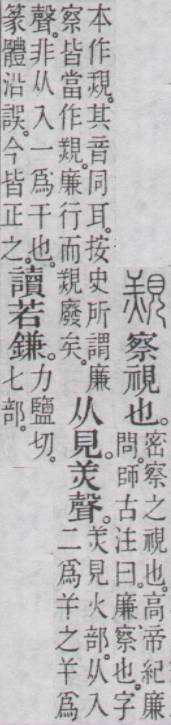 覝察視也。
密察之視也。高帝紀廉
問。師古注曰。廉察也。字
本作覝。其音同耳。按史所謂廉
察皆當作覝。廉行而覝廢矣。
从見。𤆍聲。
𤆍見火部。从入
二爲𢆉之𢆉爲
聲。非从入一爲干也。
篆體沿誤。今皆正之。
讀若鎌。
力鹽切。
七部。